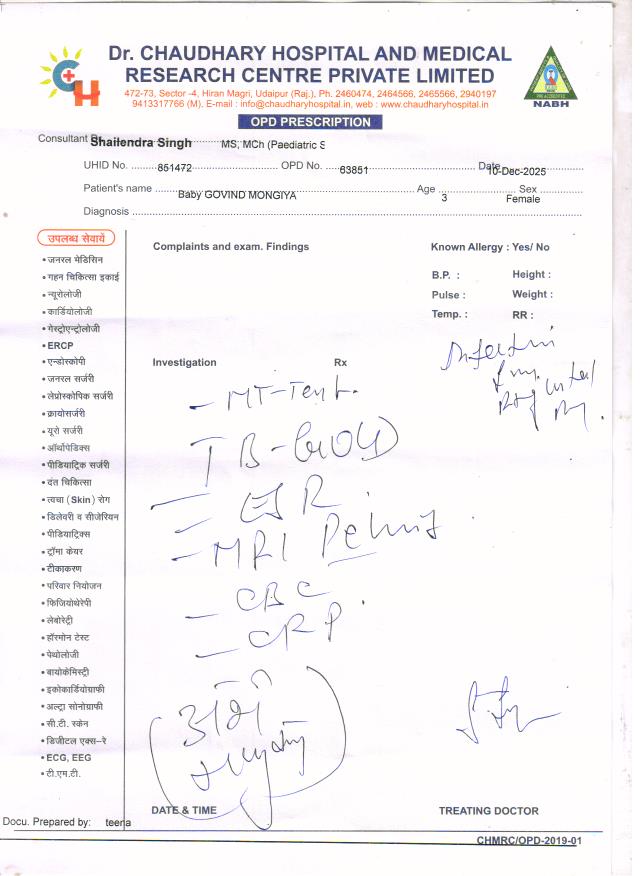 Dr. CHAUDHARY HOSPITAL AND MEDICAL
RESEARCH CENTRE PRIVATE LIMITED
472-73, Sector -4, Hiran Magri, Udaipur (Raj.), Ph. 2460474, 2464566, 2465566, 2940197
9413317766 (M). E-mail : info@chaudharyhospital.in, web : www.chaudharyhospital.in
NABH
OPD PRESCRIPTION
Consultant Shailendra Singh MS, MCh (Paediatric S
UHID No. 851472 OPD No. 63851 Date 10-Dec-2025
Patient's name Baby GOVIND MONGIYA Age 3 Sex Female
Diagnosis
उपलब्ध सेवायें
Complaints and exam. Findings Known Allergy : Yes/ No
• जनरल मेडिसिन
• गहन चिकित्सा इकाई
B.P. : Height :
• न्यूरोलोजी
Pulse : Weight :
• कार्डियोलोजी
Temp. : RR :
• गेस्ट्रोएन्ट्रोलोजी
• ERCP
• एन्डोस्कोपी
Investigation Rx
• जनरल सर्जरी
• लेप्रोस्कोपिक सर्जरी
- MT-Test.
• क्रायोसर्जरी
• यूरो सर्जरी
TB-GOLD
• ऑर्थोपेडिक्स
• पीडियाट्रिक सर्जरी
• दंत चिकित्सा
- ESR
• त्वचा (Skin) रोग
• डिलेवरी व सीजेरियन
- MRI Pelvis
• पीडियाट्रिक्स
• ट्रॉमा केयर
• टीकाकरण
• परिवार नियोजन
- CBC
• फिजियोथेरेपी
• लेबोरेट्री
- CRP
• हॉरमोन टेस्ट
• पेथोलोजी
• बायोकेमिस्ट्री
• इकोकार्डियोग्राफी
• अल्ट्रा सोनोग्राफी
• सी.टी. स्केन
• डिजीटल एक्स-रे
• ECG, EEG
• टी.एम.टी.
DATE & TIME TREATING DOCTOR
Docu. Prepared by: teena
CHMRC/OPD-2019-01